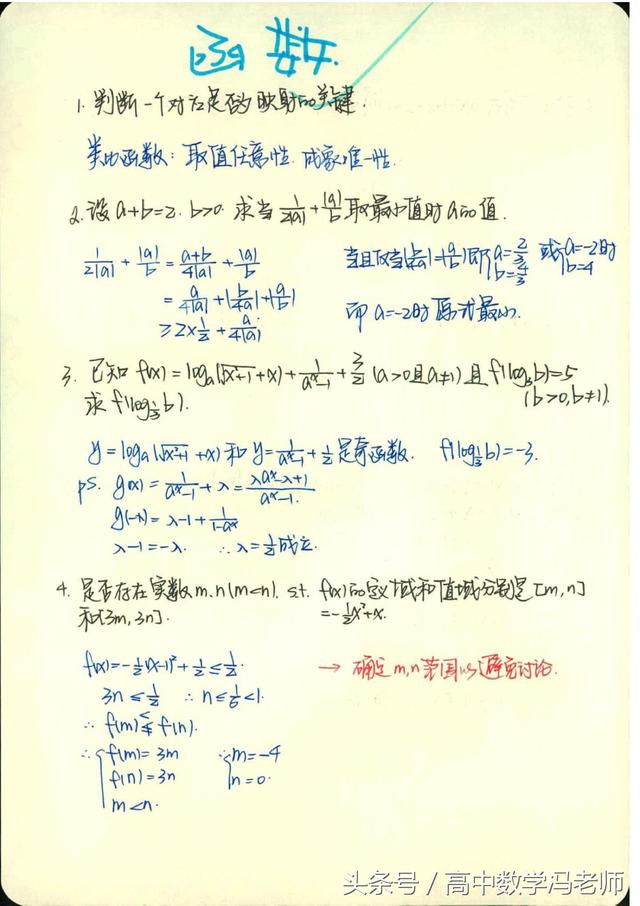 函数
1. 判断一个对应是否为映射的关键.
类比函数: 取值任意性. 成象唯一性.
2. 设 a+b=2. b>0. 求当 1/(2|a|) + |a|/b 取最小值时 a的值.
1/(2|a|) + |a|/b = (a+b)/(4|a|) + |a|/b
= a/(4|a|) + |b/(4a)| + |a/b|
≥ 2×1/2 + a/(4|a|)
当且仅当 |b/(4a)| = |a/b| 即 {a=2/3 b=4/3 或 {a=-2时 b=4
即 a=-2时 原式最小.
3. 已知 f(x) = logₐ(√(x²+1) + x) + 1/(aˣ-1) + 3/2 (a>0且a≠1) 且 f(log₃b)=5
求 f(log_{1/3} b). (b>0, b≠1).
y = logₐ(√(x²+1) + x) 和 y = 1/(aˣ-1) + 1/2 是奇函数. f(log_{1/3} b) = -3.
ps. g(x) = 1/(aˣ-1) + λ = (λaˣ-λ+1)/(aˣ-1).
g(-x) = λ-1 + 1/(1-aˣ)
λ-1 = -λ. ∴ λ=1/2 成立.
4. 是否存在实数 m、n (m<n). s.t. f(x)的定义域和值域分别是 [m, n]
和[3m, 3n]. = -1/2x²+x.
f(x) = -1/2(x-1)² + 1/2 ≤ 1/2.
3n ≤ 1/2 ∴ n ≤ 1/6 < 1.
→ 确定 m,n 范围 避免讨论.
∴ f(m) ≤ f(n).
∴ { f(m) = 3m ∴ { m=-4
f(n) = 3n n=0.
m<n.
头条号 / 高中数学冯老师